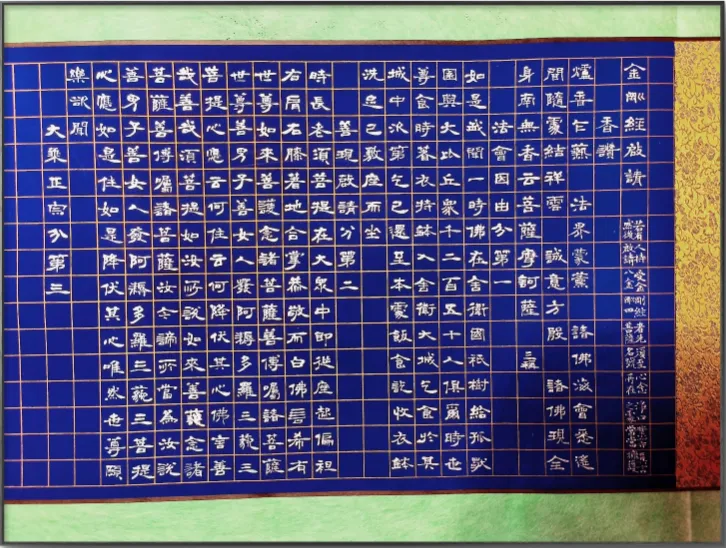 金剛經啟請
香讚
爐香乍爇 法界蒙薰 諸佛海會悉遙
聞隨處結祥雲 誠意方殷 諸佛現全
身南無香云菩薩摩訶薩 三稱
法會因由分第一
如是我聞一時佛在舍衛國祇樹給孤獨
園與大比丘眾千二百五十人俱爾時世
尊食時著衣持鉢入舍衛大城乞食於其
城中次第乞已還至本處飯食訖收衣鉢
洗足已敷座而坐
善現啟請分第二
時長老須菩提在大眾中即從座起偏袒
右肩右膝著地合掌恭敬而白佛言希有
世尊如來善護念諸菩薩善傅囑諸菩薩
世尊善男子善女人發阿耨多羅三藐三
菩提心應云何住云何降伏其心佛言善
哉善哉須菩提如汝所說如來善護念諸
菩薩善傅囑諸菩薩汝今諦聽當為汝說
善男子善女人發阿耨多羅三藐三菩提
心應如是住如是降伏其心唯然世尊願
樂欲聞
大乘正宗分第三